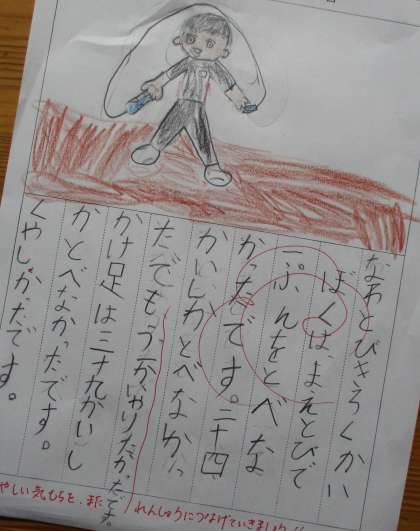 なわとびきろくかい
ぼくはまえとびで
一ぷんをとべな
かったです。三十四
かいしかとべなかっ
たでもう一かいやりたかったです。
かけ足は三十九かいし
かとべなかったです。
くやしかったです。
やしい気もちを、また
れんしゅうにつなげていきましょう